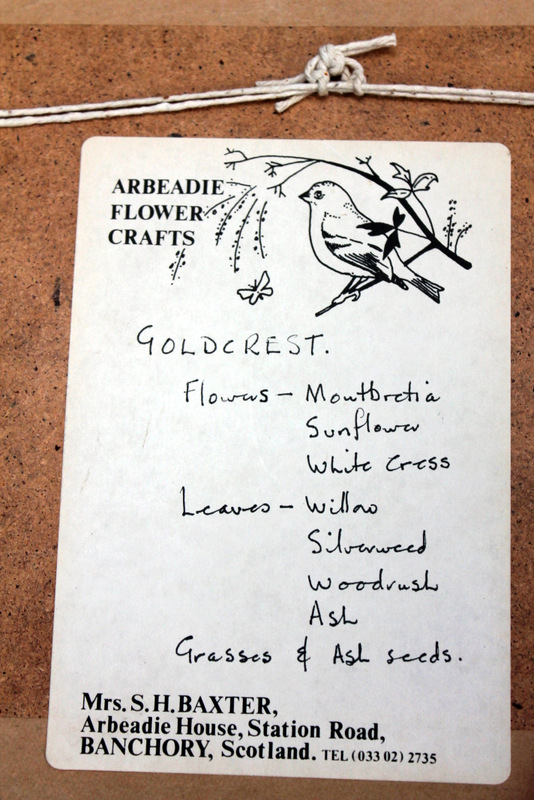 ARBEADIE
FLOWER
CRAFTS
GOLDCREST.
Flowers – Montbretia
Sunflower
White Cress
Leaves – Willow
Silverweed
Woodrush
Ash
Grasses & Ash seeds.
Mrs. S.H. BAXTER,
Arbeadie House, Station Road,
BANCHORY, Scotland. TEL (033 02) 2735